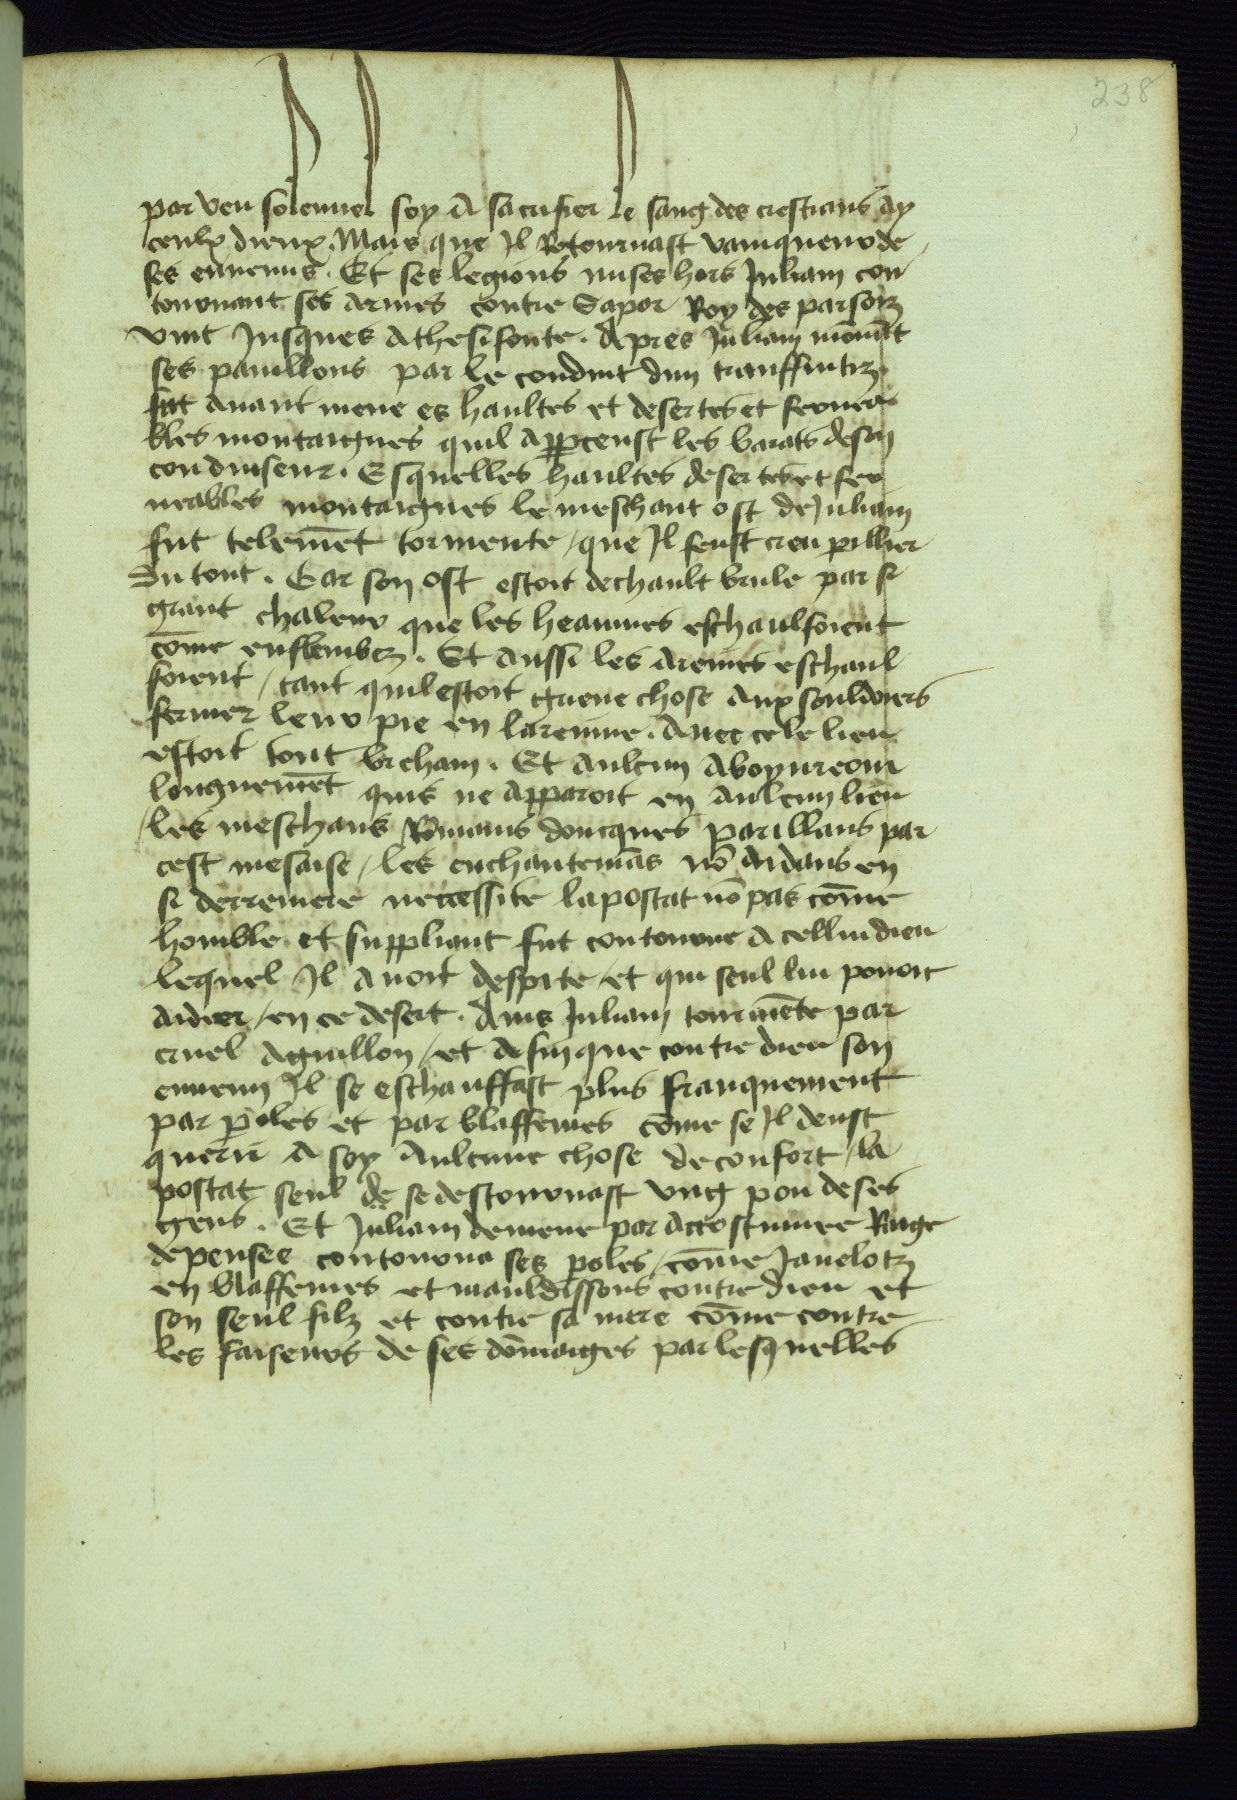 238
par veu solennel soy A sacrifier le sang des crestians ay
ceulx dieux. Mais que Il Retournast vainqueur de
ses ennemis. Et ses legions mises hors Juliam con
tournant ses armes contre Sapor Roy des parsoiz
vint Jusques Athesifonte. Apres Juliam mouuāt
ses pauillons par le conduit dun transfuitiz
fut auant mene es haultes et desertes et
bles montaignes quil apperceust les barats de son
conduiseur. Esquelles haultes desertes et
neables montaignes le meschant ost de Juliam
fut telemēt tormente / que Il feust creu perillier
Du tout. Car son ost estoit de chault brule par si
grant chaleur que les heaumes eschaulfoient
cōme enflambez. Et aussi les arenes eschaul
foient / tant quil estoit grieue chose aux souldoiers
fermer leur pie en larenne. Auec ce le lieu
estoit tout brehain. Et aulcun
longuemēt puis ne apparoit en aulcun lieu
les meschans Rōmains doncques perillans par
cest mesaise / les enchantemēs nō aidans en
si derreniere necessite lapostat nō pas cōme
homble et suppliant fut contourne A cellui dieu
lequel Il auoit despite / et qui seul lui pouoit
aidier / en ce desert. Ains Juliam tourmēte par
cruel aguillon / et afin que contre dieu son
ennemi Il se eschauffast plus franquement
par poles et par blaffemes cōme se Il deust
querir A soy aulcune chose de confort / la
postat seul de se destournast ung pou de ses
gens. Et Juliam demene par accostumee Rage
de pensee contourna ses poles / cōme Jauelotz
en blaffemes et mauldissons contre dieu et
son seul filz et contre sa mere cōme contre
les faiseurs de ses dōmaiges par lesquelles